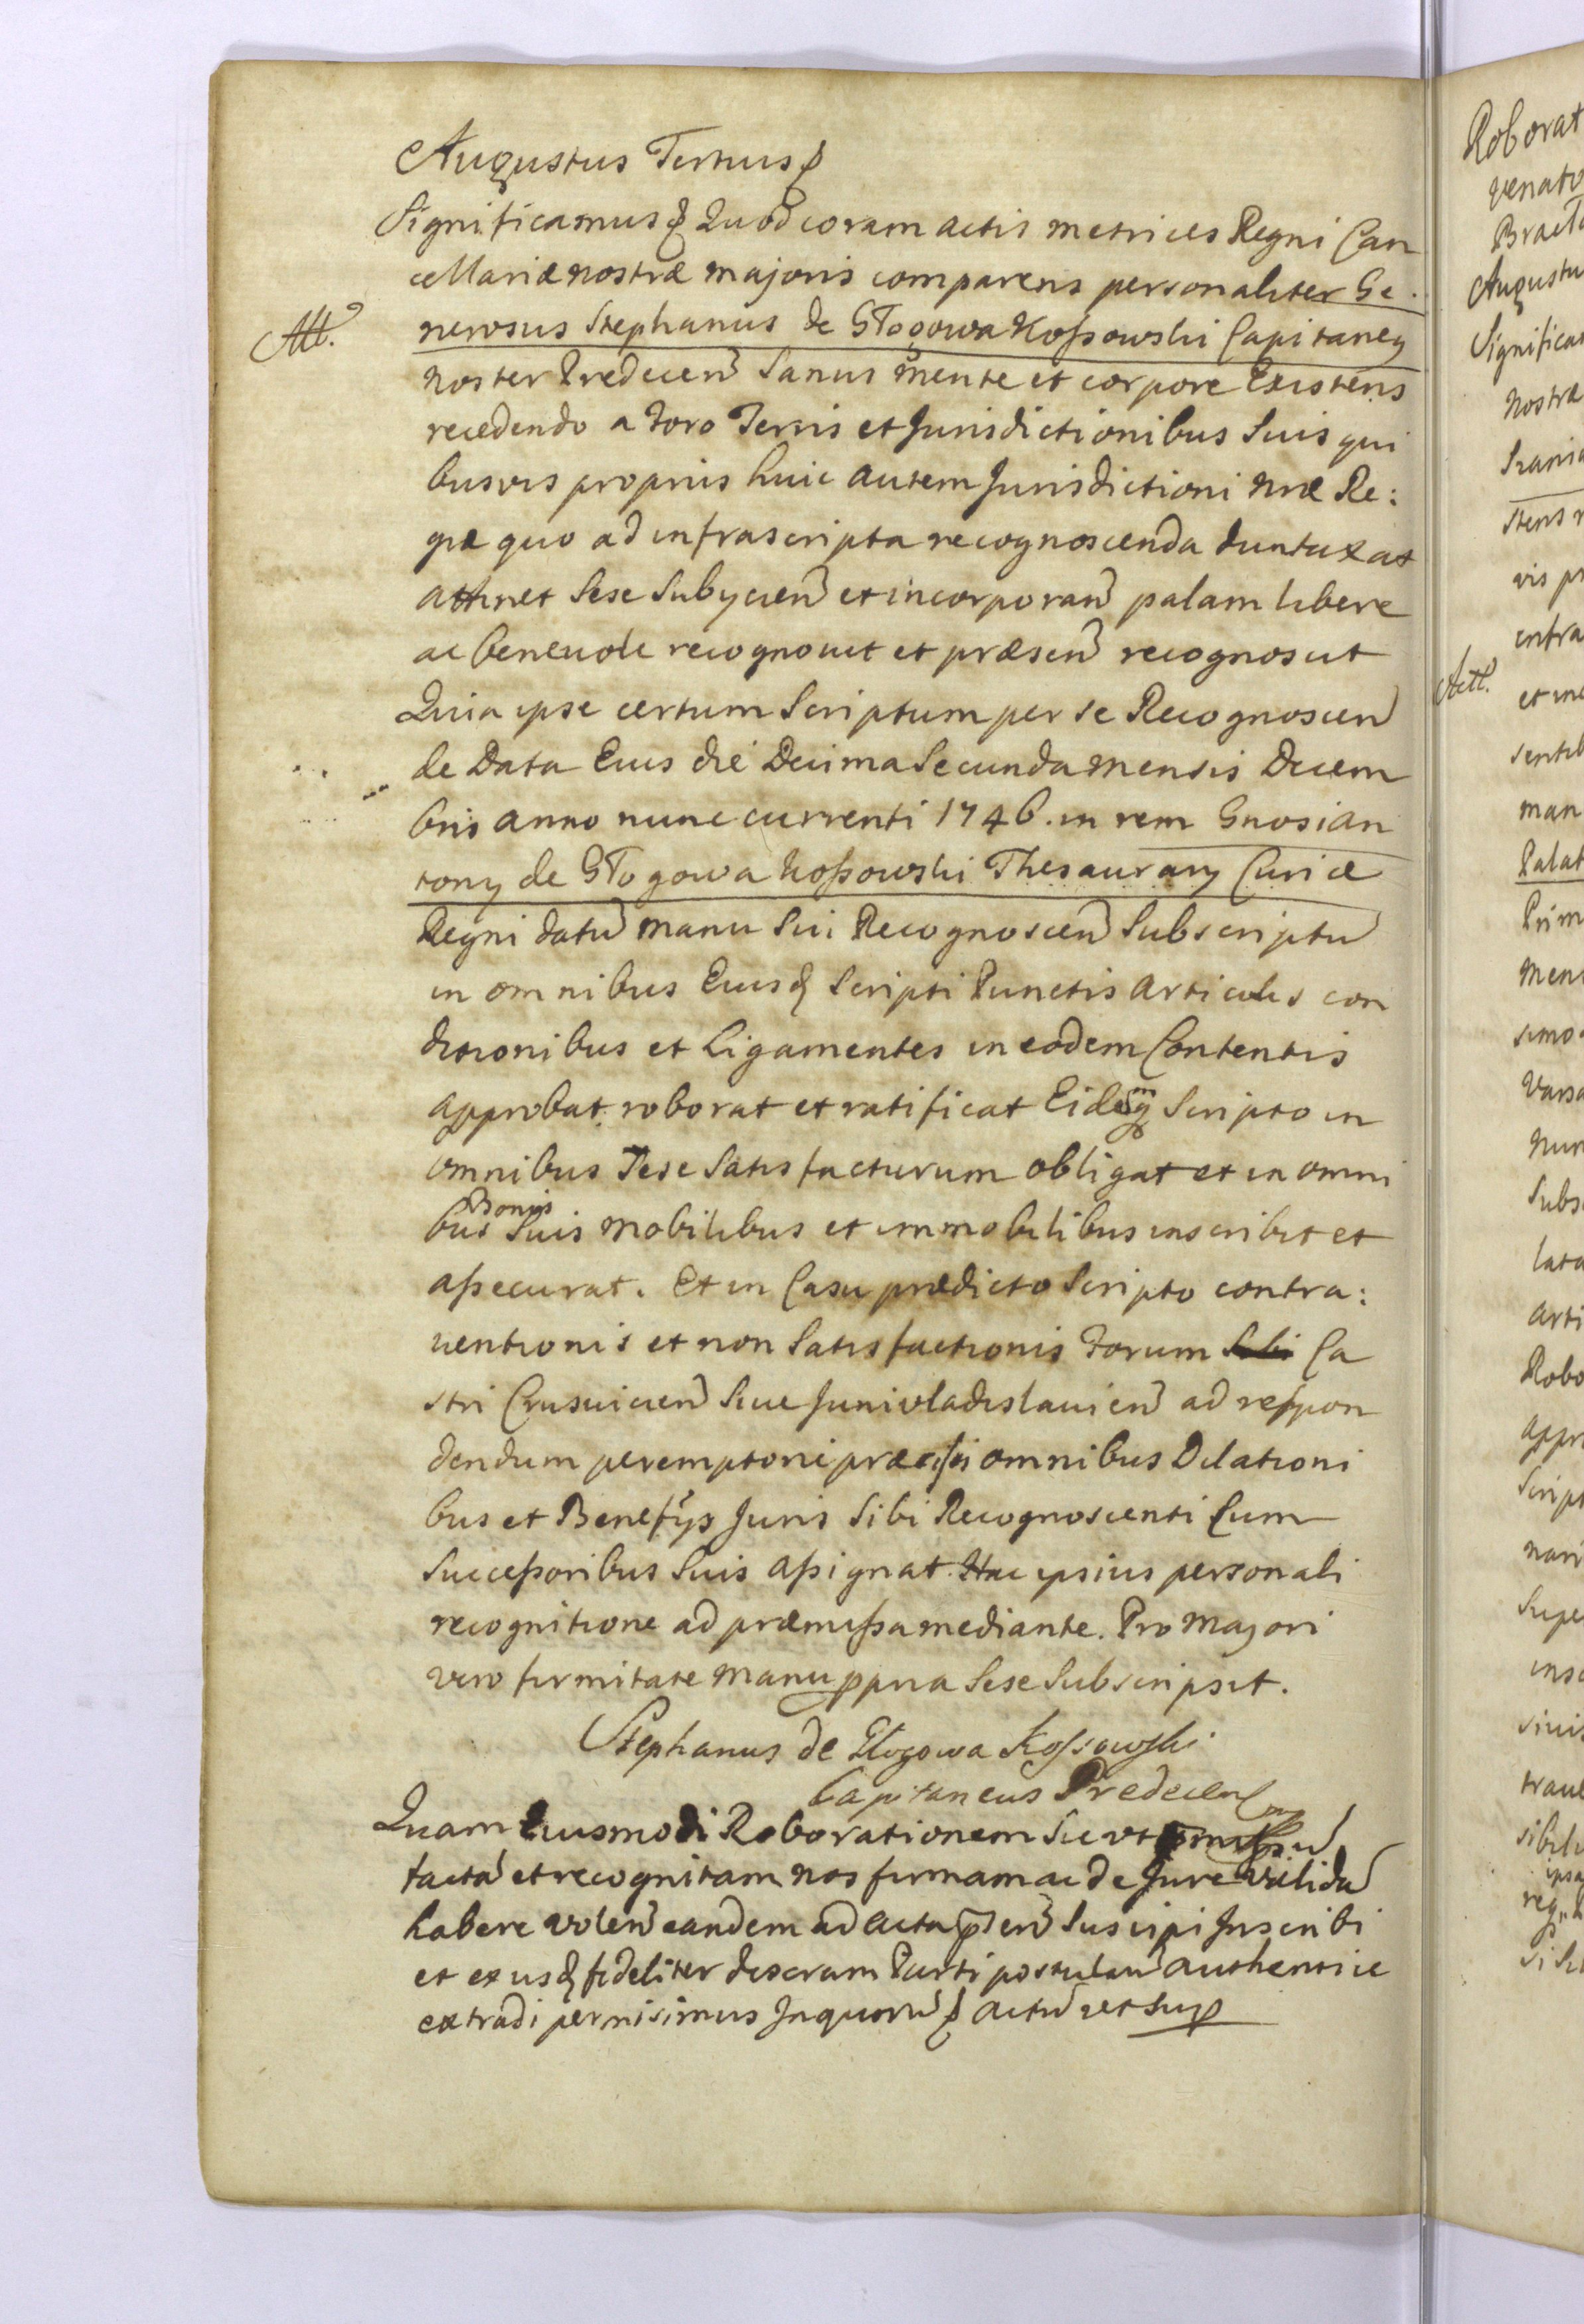 Augustus Tertius
Significamus Quod coram actis metrices Regni Can
cellariæ nostræ majoris comparens personaliter Ge.
Att.
nerosus Stephanus de Głogowa Koßowski Capitaneq
noster Predecen Sanus mente et corpore Existens
recedendo a Foro Terris et Jurisdictionibus Suis qui
busvis proprijs huic autem Jurisdictioni nræ Re:
giæ quo ad infrascripta recognoscenda duntaxat
attinet Sese Subijcien et incorporan palam libere
ac benevole recognovit et præsen recognoscit
Quia ipse certum Scriptum per se Recognoscen
de Data Eius die Decima Secunda mensis Decem
bris anno nunc currenti 1746. in rem Gnosi An
tonij de Głogowa Koßowski Thesaurarij Curiæ
Regni datu manu Sui Recognoscen Subscriptu
in omnibus Eiusq Scripti Punctis articulis con
ditionibus et Ligamentes in eodem Contentis
approbat roborat et ratificat Eidemq Scripto in
omnibus Sese Satisfacturum obligat et in omni
bus Bonis Suis mobilibus et immobilibus inscribit et
aßecurat. Et in Casu prædicto Scripto contra:
uentionis et non Satisfactionis Forum Sibi Ca
stri Crusvicien Siue Junivladislauien ad respon
dendum peremptorie præcisis omnibus Dilationi
bus et Benefijs Juris Sibi Recognoscenti Cum
Succeßoribus Suis aßignat. Hac ipsius personali
recognitione ad præmißa mediante. Pro Majori
vero firmitate manu ppria Sese Subscripsit.
Stephanus de Głogowa Kossowski
Capitaneus Predecen
Quam Eiusmodi Roborationem Sic vt
facta et recognitam nos firmam ac de Jure valida
habere volen eandem ad acta pñen Suscipi Inscribi
et ex usq fideliter descram Parti postulan authentice
extradi permisimus In quoru actu ut Sup
Roborat
venato
Bracla
Augustu
Significam
nostræ
stens r
vis pr
infra
Act.
et inc
sentib
man
Palat
Prim
Mens
simo
Varsa
nun
Subs
lata
arti
Robo
appr
Script
nari
Supe
insc
sivis
traue
sibili
ipsa